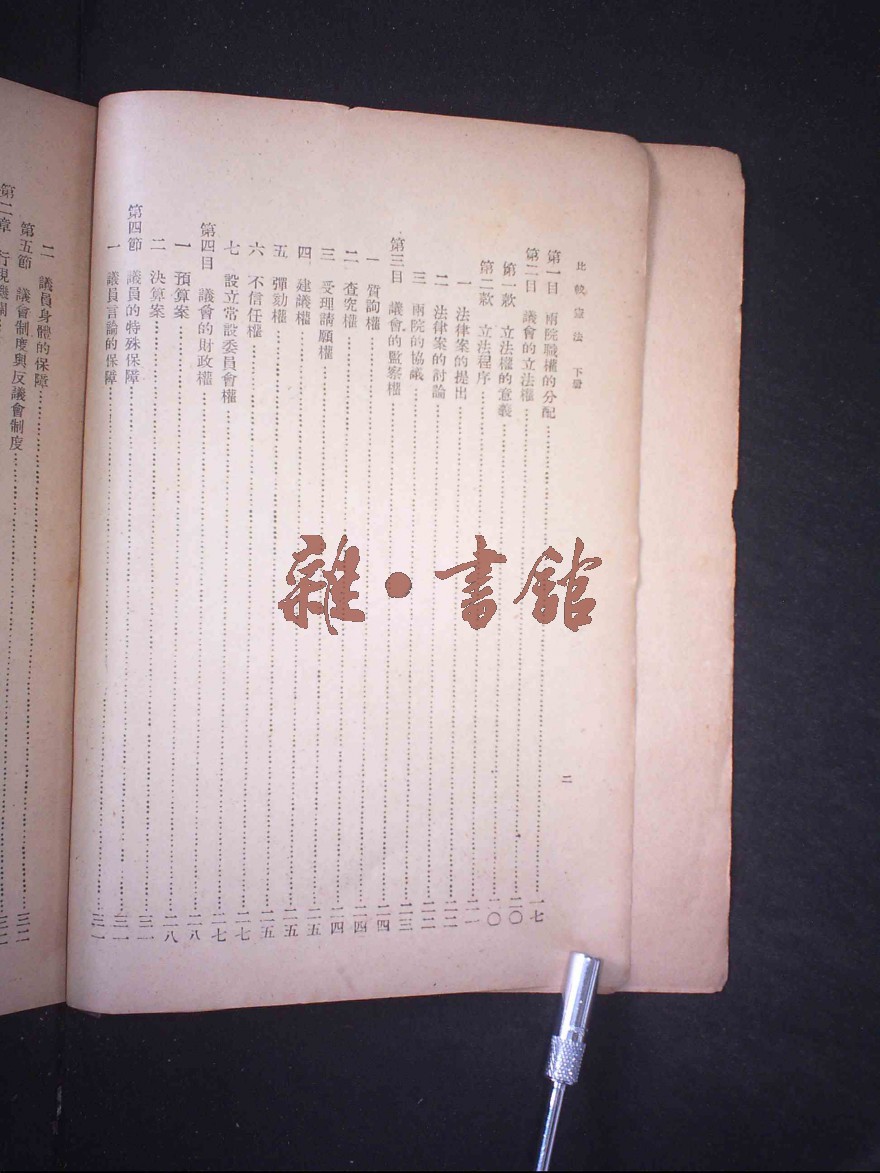 比較憲法 下册
二
第一目 兩院職權的分配……一七
第二目 議會的立法權……二〇
第一款 立法權的意義……二〇
第二款 立法程序……二一
一 法律案的提出……二二
二 法律案的討論……二二
三 兩院的協議……二三
第三目 議會的監察權……二四
一 質詢權……二四
二 查究權……二四
三 受理請願權……二五
四 建議權……二五
五 彈劾權……二五
六 不信任權……二七
七 設立常設委員會權……二七
第四目 議會的財政權……二八
一 預算案……二八
二 決算案……三一
第四節 議員的特殊保障……三一
一 議員言論的保障……三一
二 議員身體的保障……三二
第五節 議會制度與反議會制度……
第二章
雜・書館